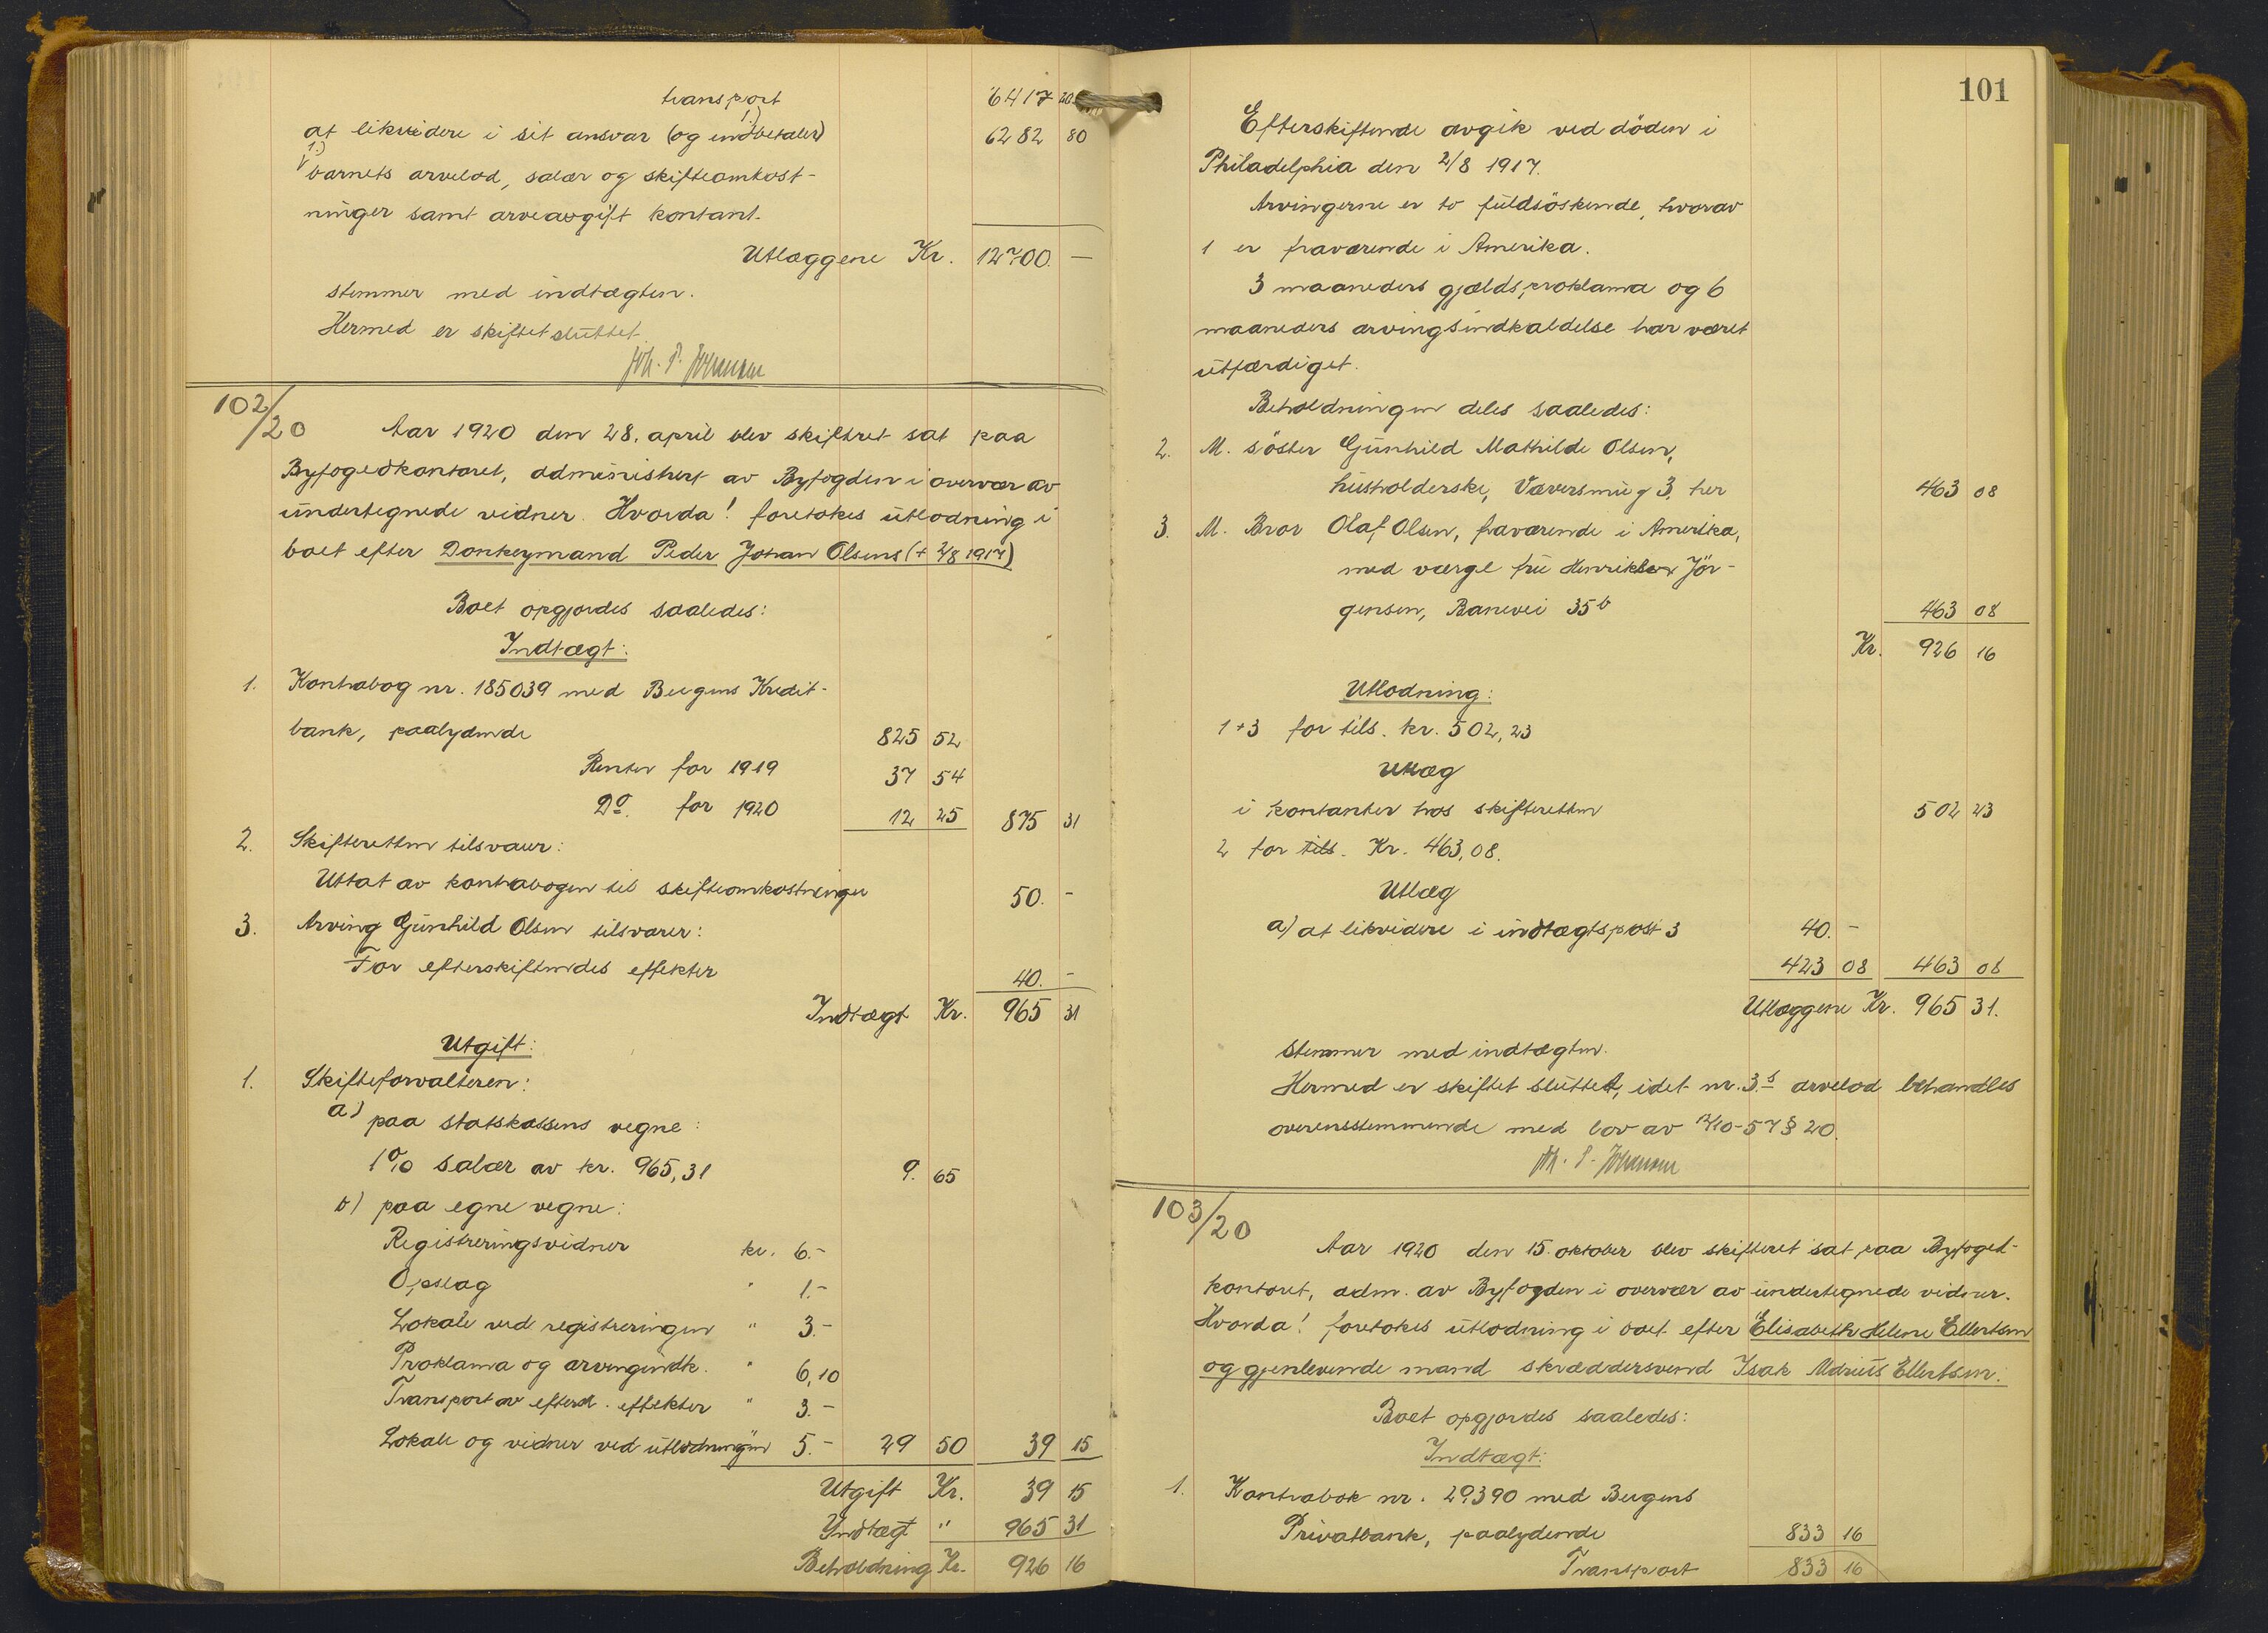 transport 6417 20
at likvidere i sit ansvar (og indbetaler) 1.) 6282 80
1.) barnets arvelod, salær og skifteomkost-
ninger samt arveavgift kontant.
Utlæggene Kr. 12700. —
stemmer med indtægten.
Hermed er skiftet sluttet.
102/20 Aar 1920 den 28. april blev skifteret sat paa
Byfogedkontoret, administrert av Byfogden i overvær av
undertegnede vidner. Hvorda! foretokes utlodning i
boet efter Donkeymand Peder Johan Olsens († 2/8 1917)
Boet opgjordes saaledes:
Indtægt:
1. Kontrabog nr. 185039 med Bergens Kredit-
bank, paalydende 825 52
Renter for 1919 37 54
Do. for 1920 12 25 875 31
2. Skifteretten tilsvarer:
Uttat av kontrabogen til skifteomkostninger 50. -
3. Arving Gunhild Olsen tilsvarer:
For efterskiftendes effekter 40. -
Indtægt Kr. 965 31
Utgift:
1. Skifteforvalteren:
a) paa statskassens vegne:
1% salær av kr. 965,31 9. 65
b) paa egne vegne:
Registreringsvidner kr. 6.-
Opslag " 1.-
Lokale ved registreringen " 3.-
Proklama og arvingindk. " 6,10
Transport av efterd. effekter " 3.-
Lokale og vidner ved utlodningen " 5.- 29 50 39 15
Utgift Kr. 39 15
Indtægt " 965 31
Beholdning Kr. 926 16
101
Efterskiftende avgik ved döden i
Philadelphia den 2/8 1917.
Arvingerne er to fuldsöskende, hvorav
1 er fraværende i Amerika.
3 maaneders gjældsproklama og 6
maaneders arvingsindkaldelse har været
utfærdiget.
Beholdningen deles saaledes:
2. M. söster Gunhild Mathilde Olsen,
husholderske, Væversmug 3, her 463 08
3. M. Bror Olaf Olsen, fraværende i Amerika,
med værge fru Henriksen Jör-
gensen, Banevei 35b 463 08
Kr. 926 16
Utlodning:
1+3 for tils. kr. 502,23
Utlæg
i kontanter hos skifteretten 502 23
2 for tils. Kr. 463,08.
Utlæg
a) at likvidere i indtægtspost 3 40. -
423 08 463 08
Utlæggene Kr. 965 31.
stemmer med indtægten.
Hermed er skiftet sluttet, idet nr. 3.s arvelod behandles
overensstemmende med lov av 12/10-57 § 20.
103/20 Aar 1920 den 15. oktober blev skifteret sat paa Byfoged-
kontoret, adm. av Byfogden i overvær av undertegnede vidner.
Hvorda! foretokes utlodning i boet efter Elisabeth Helene Ellertsen
og gjenlevende mand skræddersvend Isak Ellertsen.
Boet opgjordes saaledes:
Indtægt:
1. Kontrabok nr. 29390 med Bergens
Privatbank, paalydende 833 16
Transport 833 16